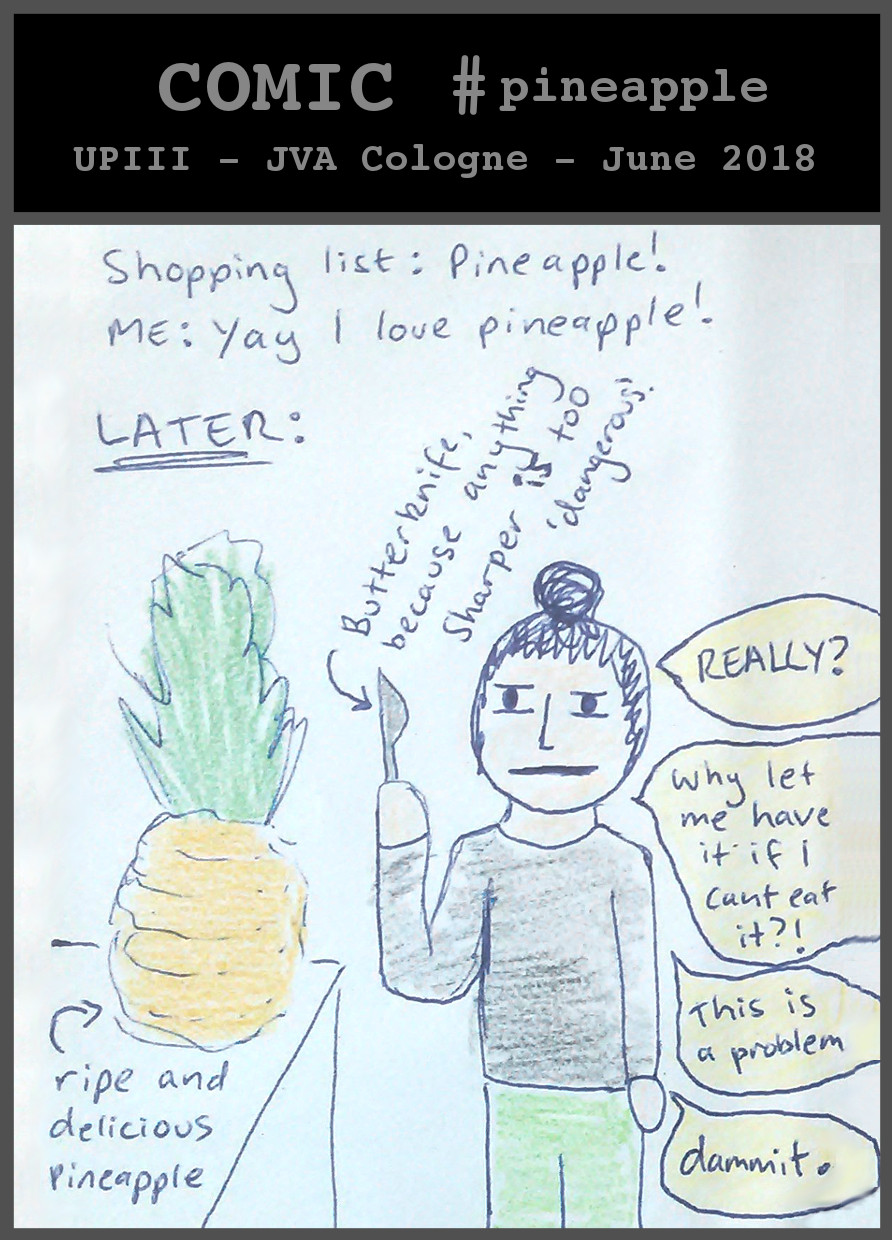 COMIC #pineapple
UPIII - JVA Cologne - June 2018
Shopping list: Pineapple!
ME: Yay I love pineapple!
LATER:
Butterknife,
because anything
Sharper is too
'dangerous'
REALLY?
Why let
me have
it if I
cant eat
it?!
This is
a problem
dammit.
ripe and
delicious
Pineapple